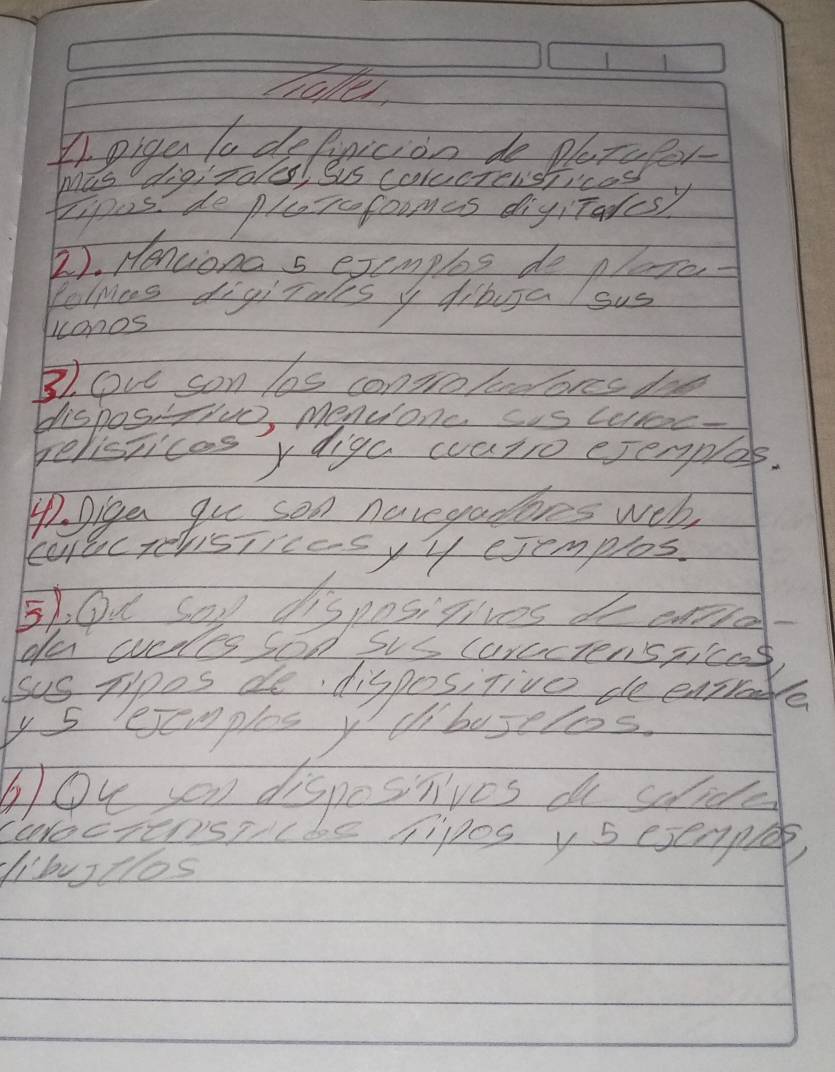 Taller,
1). Diga la definición de platafor-
mas digitales, sus caracteristicas y
Tipos. de plataformas digitales).
2). Menciona 5 ejemplos de plata-
formas digitales y dibuja sus
iconos
3). Que son los controladores del
dispositivo, menciona sus carac-
teristicas y diga cuatro ejemplos.
4). Diga que son navegadores web,
caracteristicas y 4 ejemplos.
5). Que son dispositivos de entra-
da cuales son sus caracteristicas,
sus tipos de. dispositivo de entrada
y 5 ejemplos y dibujelos.
6) Qu son dispositivos de salida
caracteristicas tipos y 5 ejemplos,
dibujelos